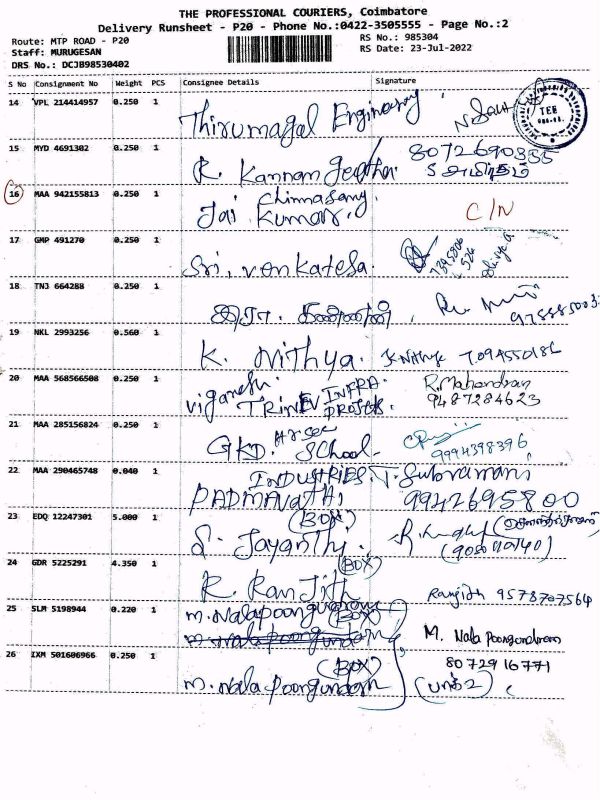 THE PROFESSIONAL COURIERS, Coimbatore
Delivery Runsheet - P20 - Phone No.:0422-3505555 - Page No.:2
Route: MTP ROAD - P20
RS No.: 985304
Staff: MURUGESAN
RS Date: 23-Jul-2022
DRS No.: DCJB98530402
S No Consignment No Weight PCS Consignee Details Signature
14 VPL 214414957 0.250 1 Thirumagal Engineering
TEE
15 MYD 4691302 0.250 1 R. Kannam 8072690355
16 MAA 942155813 0.250 1 Chinnasamy C/N
Jai Kumar.
17 GMP 491270 0.250 1 Sri. Venkatesa.
18 TNJ 664288 0.250 1 இரா. கண்ணன்.
19 NKL 2993256 0.560 1 K. Nithya. 7094550186
20 MAA 568566508 0.250 1 Viganesh. R. Mahendran
TRINEV INFRA PROJECTS. 9487284623
21 MAA 285156824 0.250 1 GKD. Hr Sec School- 9994398396
22 MAA 290465748 0.040 1 INDUSTRIES. T. Subramani
PADMAVATHI 9942695800
23 EDQ 12247301 5.000 1 (BOX)
S. Jayanthi.
24 GDR 5225291 4.350 1 (BOX)
R. Ranjith Ranjith 9578707564
25 SLM 5198944 0.220 1 (BOX)
M. Nala Poongundran
26 IXM 501606966 0.250 1 (BOX) 8072916771